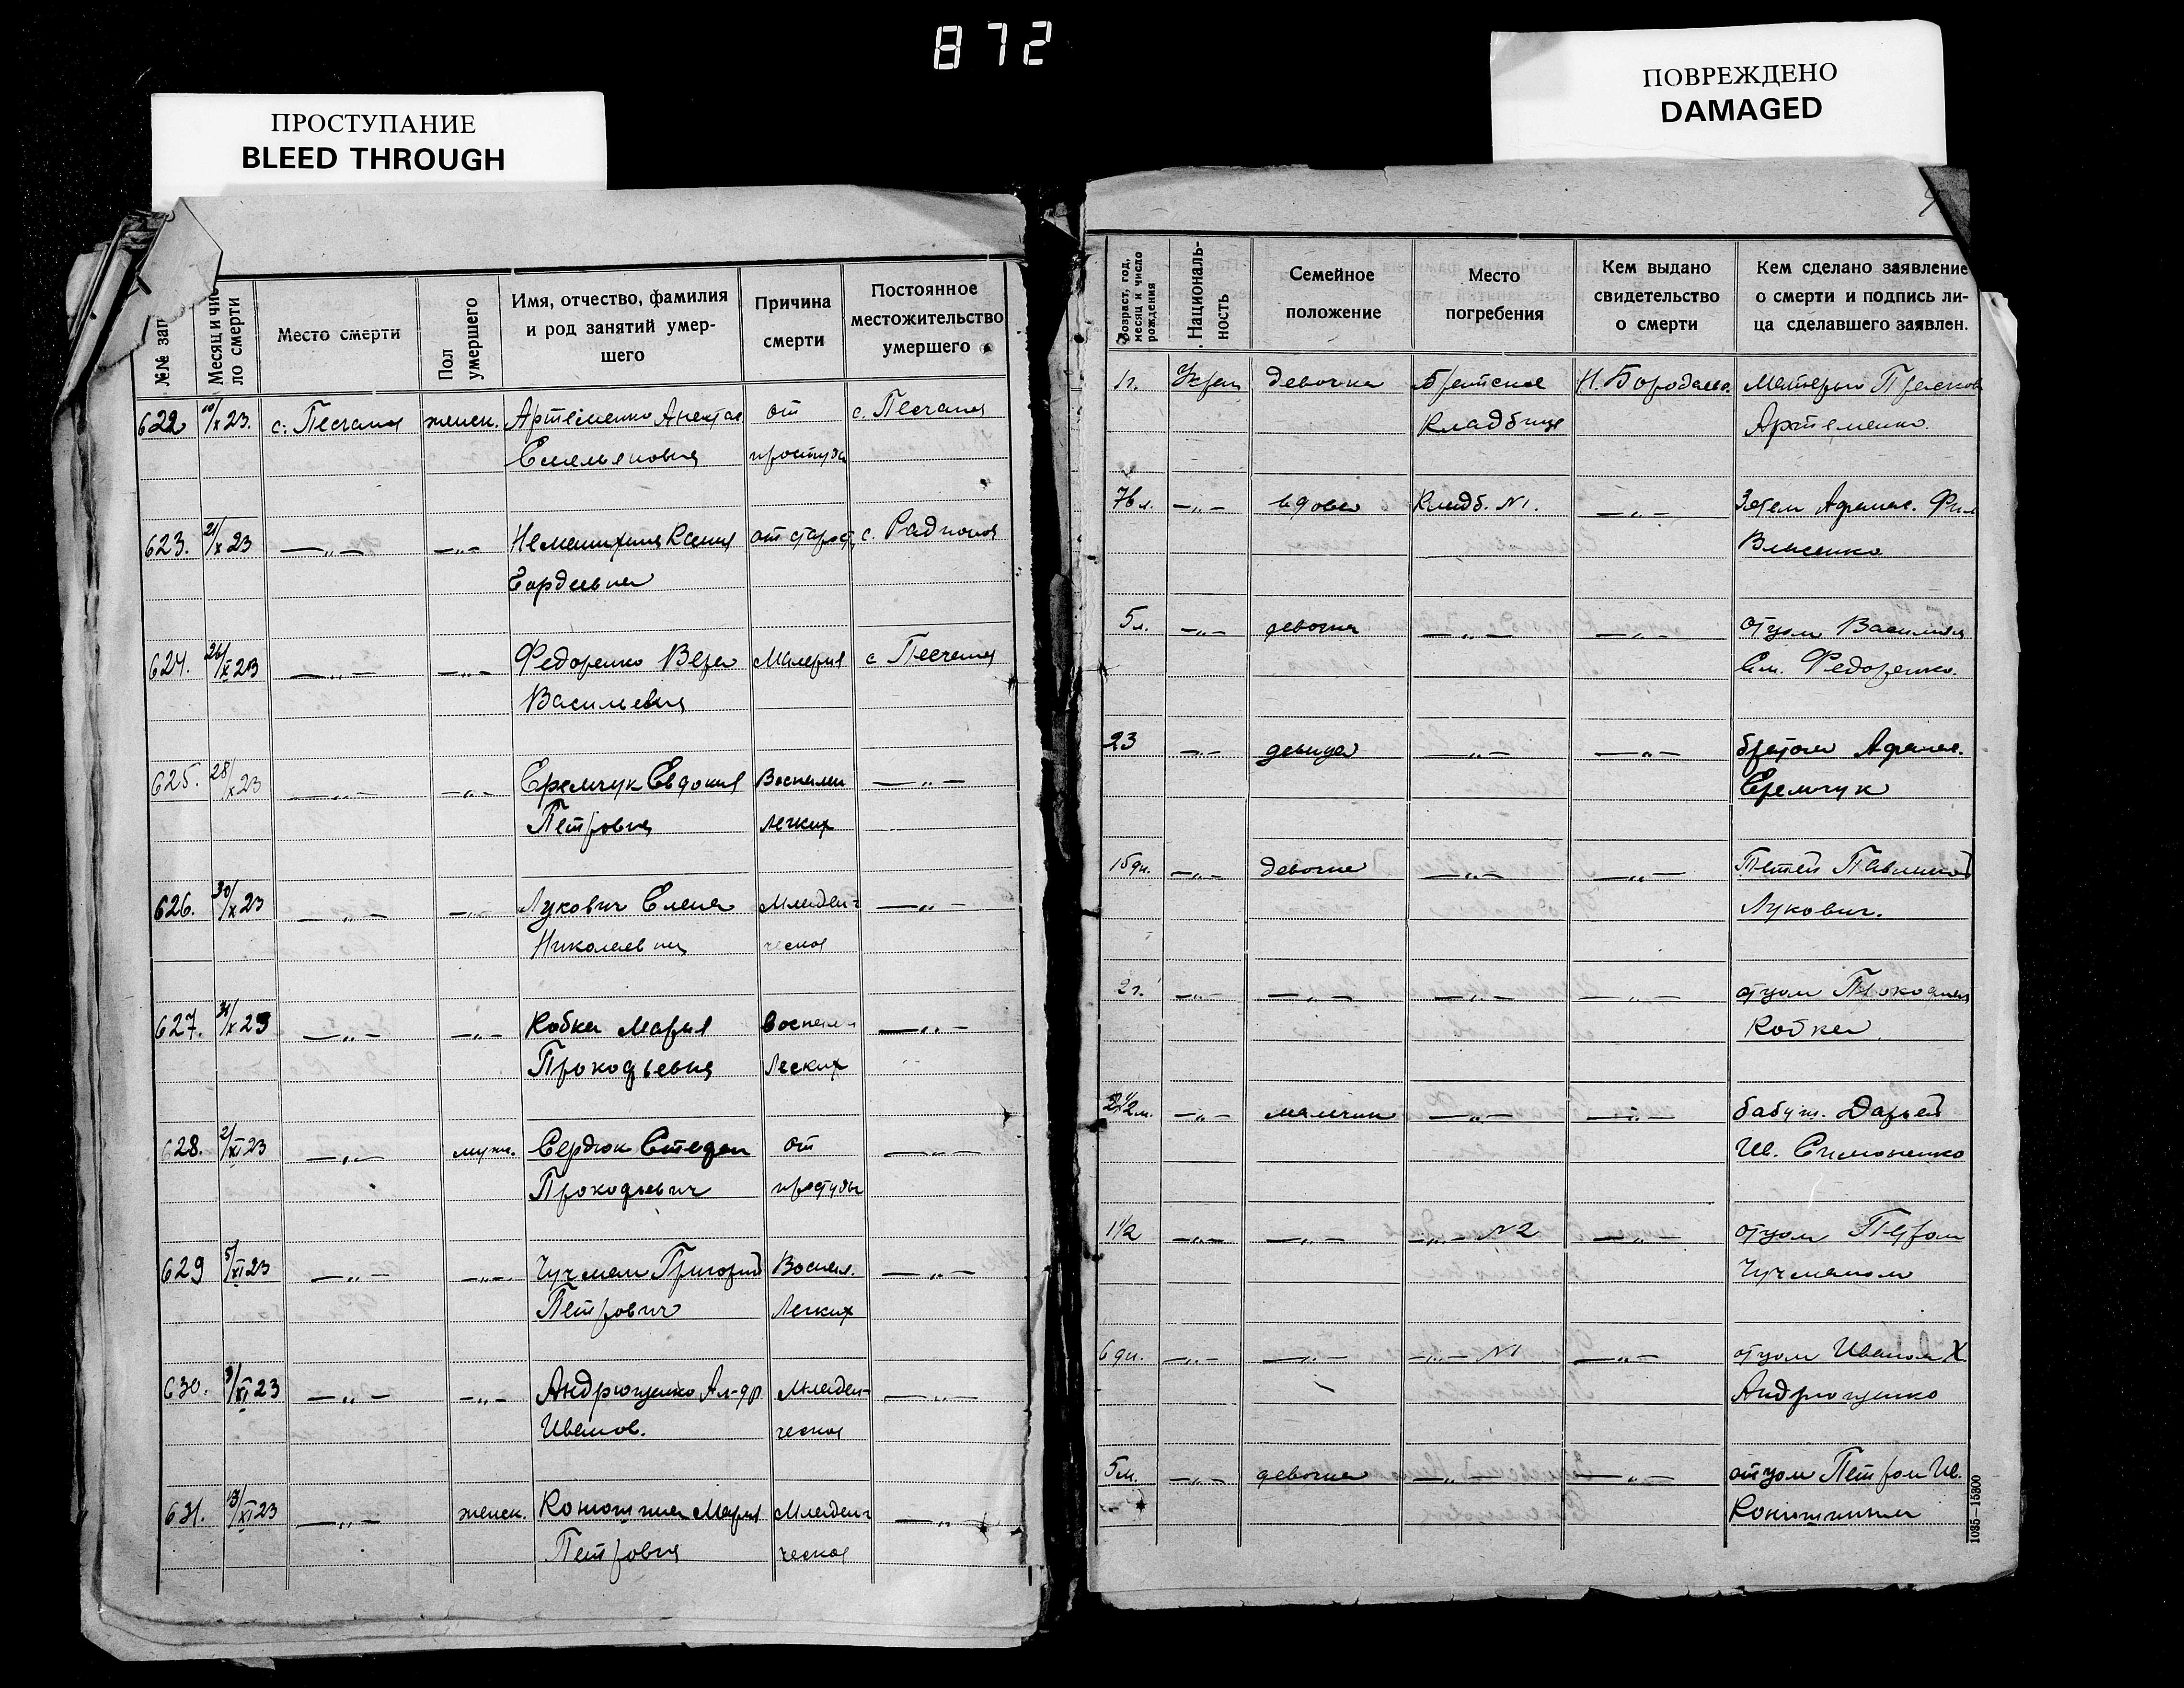 872
ПРОСТУПАНИЕ
BLEED THROUGH
ПОВРЕЖДЕНО
DAMAGED
№№ зап
Месяц и чис
ло смерти
Место смерти
Пол
умершего
Имя, отчество, фамилия
и род занятий умер-
шего
Причина
смерти
Постоянное
местожительство
умершего
622 /X 23. с. Песчаная женск. Артеменко от с. Песчаная
Емельяновна простуды
623. 21/X 23 —„— —„— Ксения от старост с. Радионов
Гордеевна
624. 26/X 23 —„— —„— Федоренко Вера Малерия с Песчаная
Васильевна
625. 28/X 23 —„— —„— Еремчук Евдокия Воспален —„—
Петровна Легких
626. 30/X 23 —„— —„— Лукович Елена Младен- —„—
Николаевна ческая
627. 31/X 23 —„— —„— Кобка Мария Воспален —„—
Прокофьевна Легких
628. 2/XI 23 —„— мужс. Сердюк Стефан от —„—
Прокофьевич простуды
629 5/XI 23 —„— —„— Чучман Григорий Воспал. —„—
Петрович Легких
630. /XI 23 —„— —„— Андрющенко Ал-др Младен- —„—
Иванов. ческая
631. 13/XI 23 —„— женск. Мария Младен- —„—
Петровна ческая
Возраст, год,
месяц и число
рождения
Националь-
ность
Семейное
положение
Место
погребения
Кем выдано
свидетельство
о смерти
Кем сделано заявление
о смерти и подпись ли-
ца сделавшего заявлен.
1 г. Украин девочка Братское Н. Бородаев. Матерью Прасков
Кладбище Артеменко.
76 л. —„— вдова Кладб. №1. —„— Зятем Афанас. Фил
Власенко
5 л. —„— девочка —„— —„— отцом Василием
Ем. Федоренко.
23 —„— девица —„— —„— братом Афанас.
Еремчук
15 дн. —„— девочка —„— —„— Тетей Павлиной
Лукович.
2 г. —„— —„— —„— —„— отцом Прокофием
Кобкой
2½ м. —„— мальчик —„— —„— бабуш. Дарьей
Ив. Симоненко
1½ —„— —„— —„— №2 —„— отцом Петром
Чучманом
6 дн. —„— —„— —„— №1 —„— отцом Иваном Х.
Андрющенко
5 м. —„— девочка —„— —„— отцом Петром Ив.
1035—15300